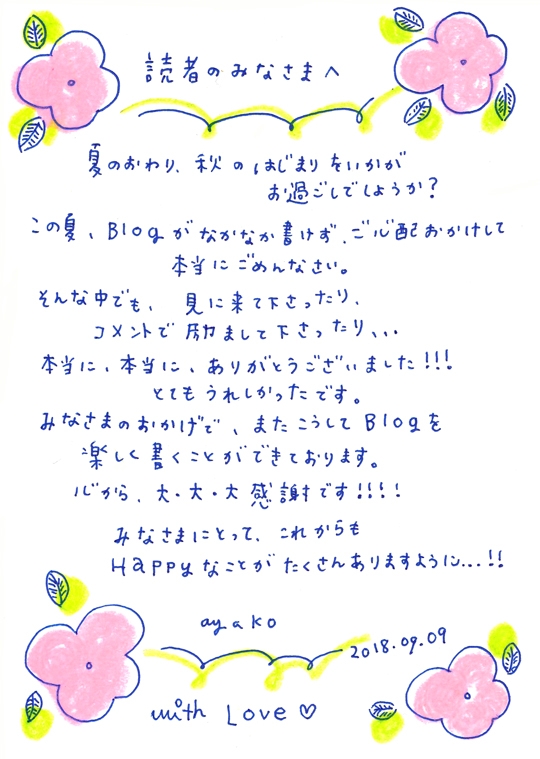 読者のみなさまへ
夏のおわり、秋のはじまりをいかが
お過ごしでしょうか?
この夏、Blogがなかなか書けず、ご心配おかけして
本当にごめんなさい。
そんな中でも、見に来て下さったり、
コメントで励まして下さったり、、、
本当に、本当に、ありがとうございました!!!
とてもうれしかったです。
みなさまのおかげで、またこうしてBlogを
楽しく書くことができております。
心から、大・大・大感謝です!!!!
みなさまにとって、これからも
Happyなことがたくさんありますように...!!
ayako
2018.09.09
with Love ♡